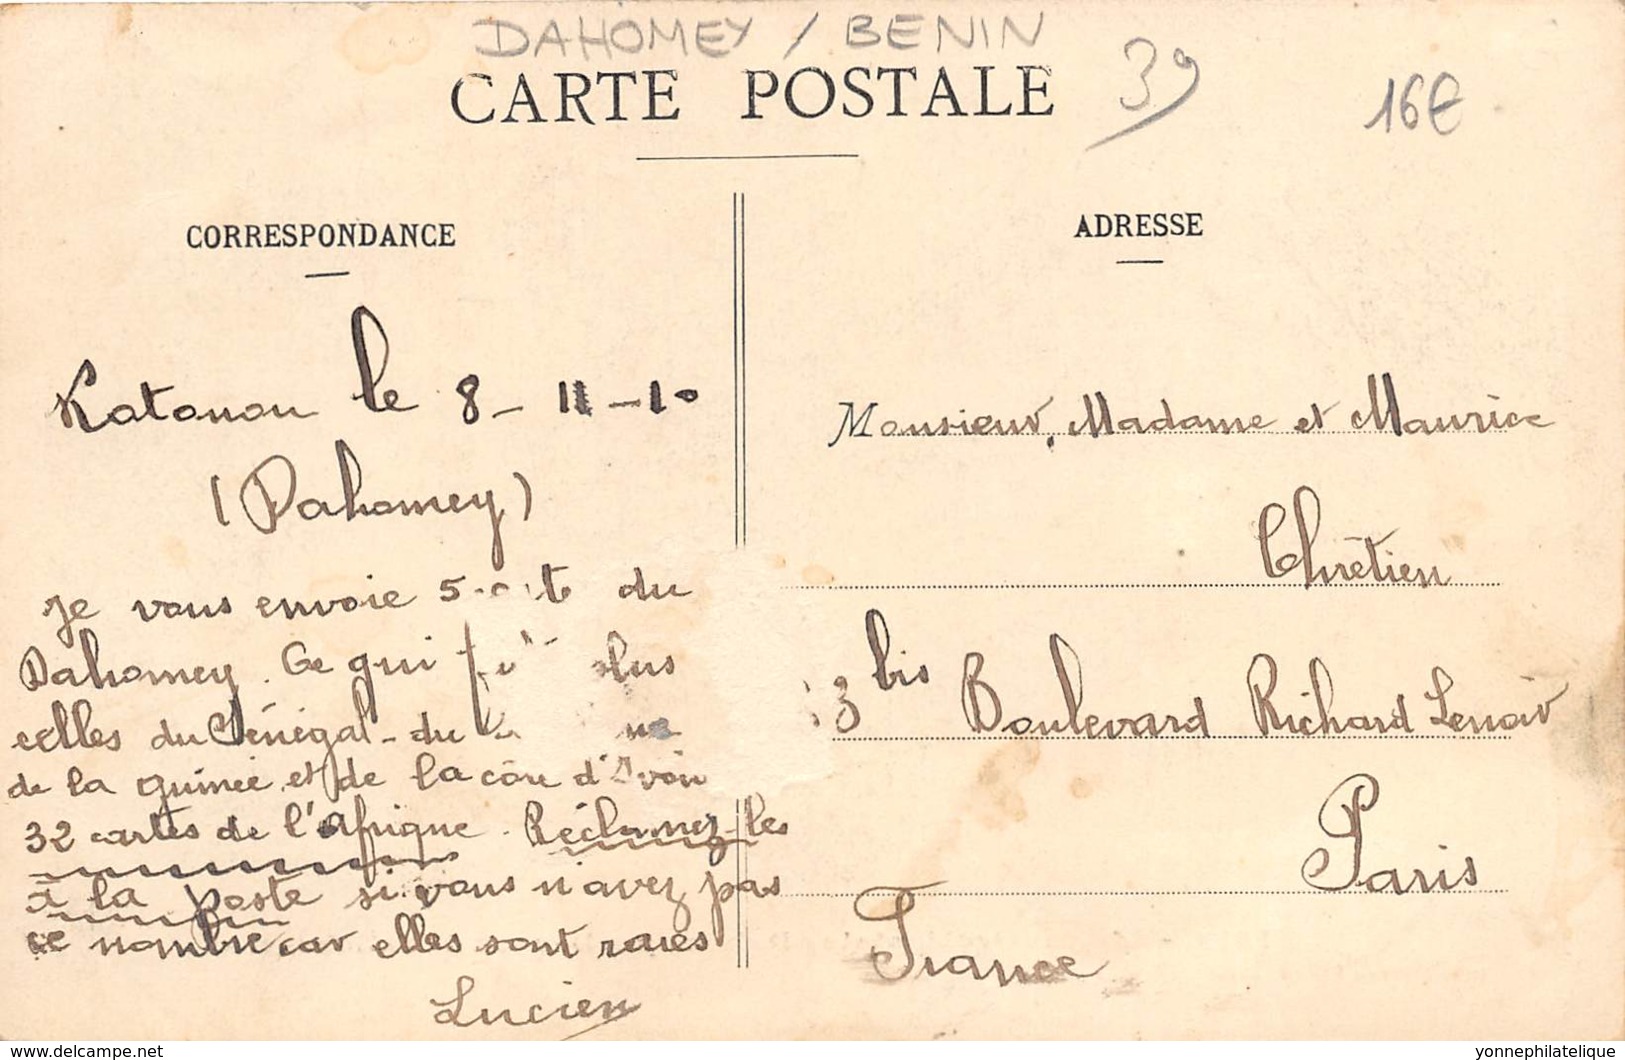 DAHOMEY / BENIN
CARTE POSTALE
39
16€
CORRESPONDANCE
ADRESSE
Kotonou le 8-11-10
(Dahomey)
Je vous envoie 5 du
Dahomey. Ce qui plus
celles du Sénégal - du
de la guinée et de la côte d'Ivoir
32 cartes de l'Afrique. Réclamez-les
à la poste si vous n'avez pas
ce nombre car elles sont rares
Lucien
Monsieur, Madame et Maurice
Chrétien
3 bis Boulevard Richard Lenoir
Paris
France
www.delcampe.net
yonnephilatelique